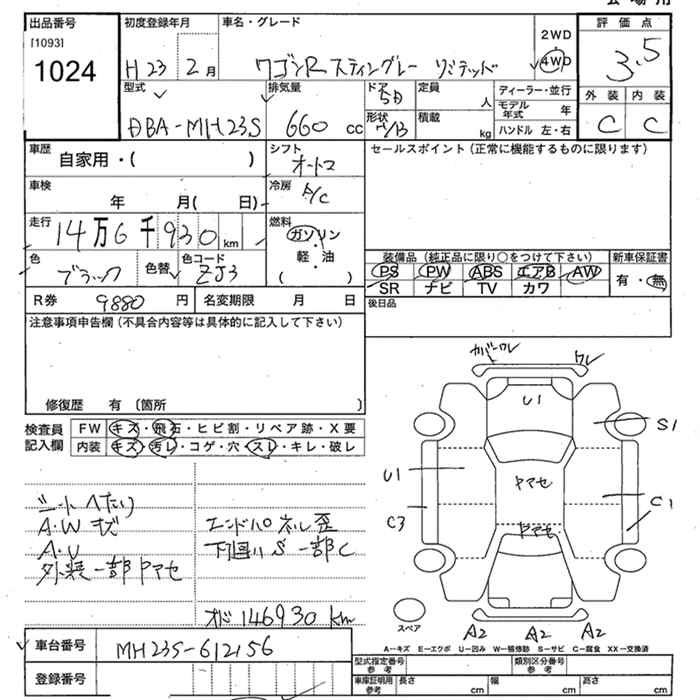 出品番号 初度登録年月 車名・グレード 2WD 評価点
[1093]
1024 H23 2月 ワゴンR スティングレー リミテッド 4WD 3.5
型式 排気量 ドア 5D 定員 人 ディーラー・並行 外装 内装
DBA-MH23S 660 cc 形状 積載 kg モデル年式 年 C C
ハンドル 左・右
車歴 自家用・( ) シフト オートマ セールスポイント(正常に機能するものに限ります)
車検 年 月( 日) 冷房 A/C
走行 14万6千930 km 燃料 ガソリン・軽・油 ( )
装備品 (純正品に限り○をつけて下さい) 新車保証書
色 ブラック 色替 色コード ZJ3 PS PW ABS エアB AW 有・無
SR ナビ TV カワ
R券 9880 円 名変期限 月 日 後日品
注意事項申告欄(不具合内容等は具体的に記入して下さい)
修復歴 有 (箇所 )
検査員記入欄 FW キズ・飛石・ヒビ割・リペア跡・X要
内装 キズ・汚レ・コゲ・穴・スレ・キレ・破レ
シートへたり
A・Wキズ エンドパネル歪
A・U 下廻りS 一部C
外装一部ヤマセ
オド146930 km
カバーワレ ワレ
U1
S1
U1 ヤマセ C1
C3
ヤマセ
スペア A2 A2 A2
A-キズ E-エクボ U-凹み W-補修跡 S-サビ C-腐食 XX-交換済
車台番号 MH23S-612156 型式指定番号 参考 類別区分番号 参考
登録番号 車庫証明用 参考 長さ cm 幅 cm 高さ cm